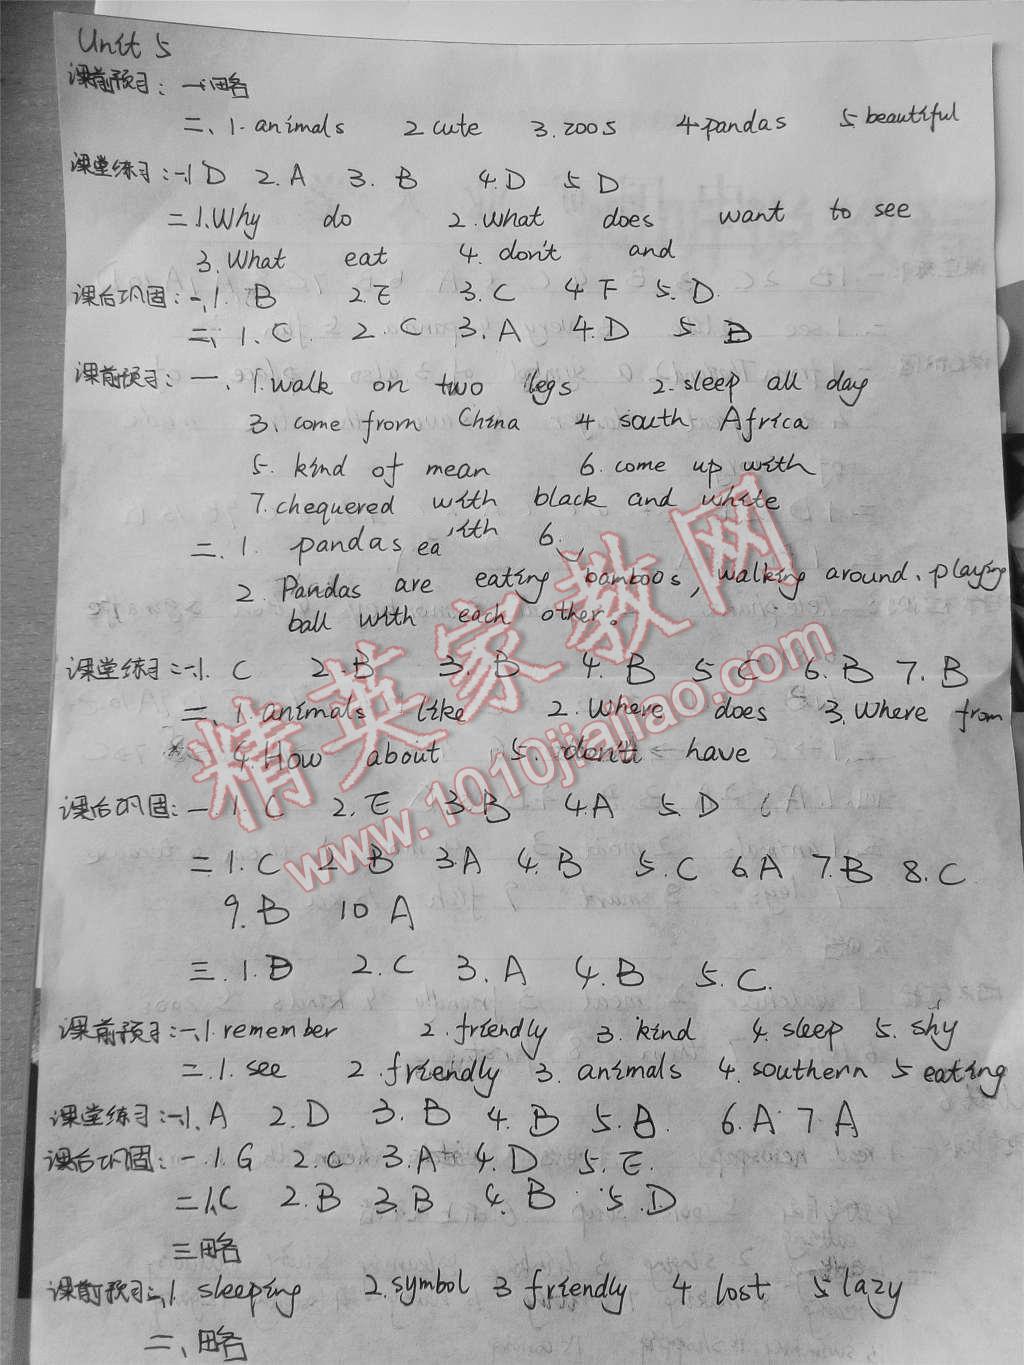 Unit 5
课前预习：一.略
二、1.animals 2 cute 3.zoos 4 pandas 5 beautiful
课堂练习：一.1 D 2.A 3. B 4.D 5 D
二 1.Why do 2.what does want to see
3.What eat 4. don't and
课后巩固：一、1. B 2.E 3.C 4 F 5. D
二：1. C 2. C 3. A 4.D 5 B
课前预习：一、1.walk on two legs 2.sleep all day
3.come from China 4 south Africa
5. kind of mean 6.come up with
7.chequered with black and white
二. 1. pandas ea ith 6.
2. Pandas are eating bamboos, walking around、playing
ball with each other。
课堂练习：一.1. C 2.B 3.B 4.B 5 C 6.B 7.B
二、1 animals like 2.Where does 3.Where from
4.How about 5.don't have
课后巩固：一. 1.C 2.E 3.B 4.A 5.D 6 A
二.1.C 2.B 3.A 4.B 5.C 6A 7.B 8.C
9.B 10 A
三.1.D 2.C 3.A 4.B 5.C.
课前预习：一、1.remember 2.friendly 3.kind 4.sleep 5.shy
二.1.see 2.friendly 3.animals 4.southern 5 eating
课堂练习：一、A 2.D 3.B 4.B 5.B. 6.A 7 A
课后巩固：一.1.G 2.C 3.A 4.D 5.E.
二1.C 2.B 3.B 4.B 5.D
三略
课前预习：一、1 sleeping 2.symbol 3 friendly 4 lost 5 lazy
二、略
精英家教网
www.1010jiajiao.com